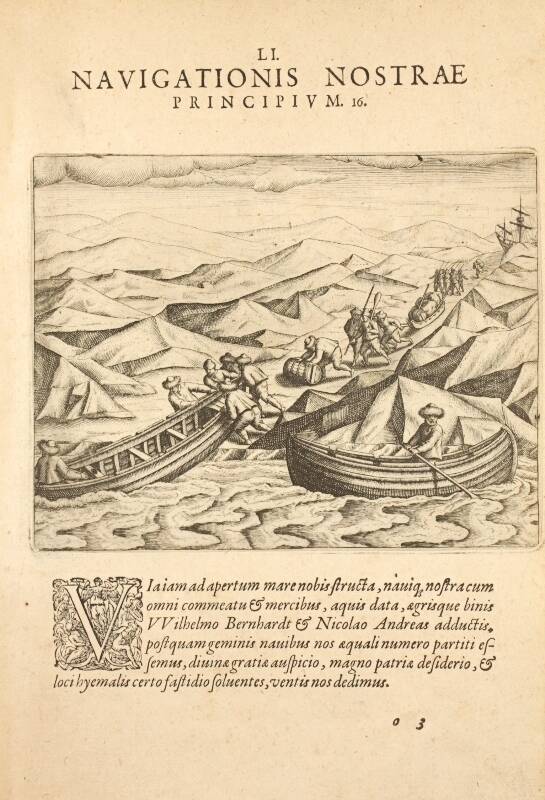 LI.
NAVIGATIONIS NOSTRAE
PRINCIPIVM. 16.
VIa iam ad apertum mare nobis structa, nauiq́, nostra cum
omni commeatu & mercibus, aquis data, ægrisque binis
VVilhelmo Bernhardt & Nicolao Andreas adductis,
postquam geminis nauibus nos æquali numero partiti es-
semus, diuinæ gratiæ auspicio, magno patriæ desiderio, &
loci hyemalis certo fastidio soluentes, ventis nos dedimus.
o 3